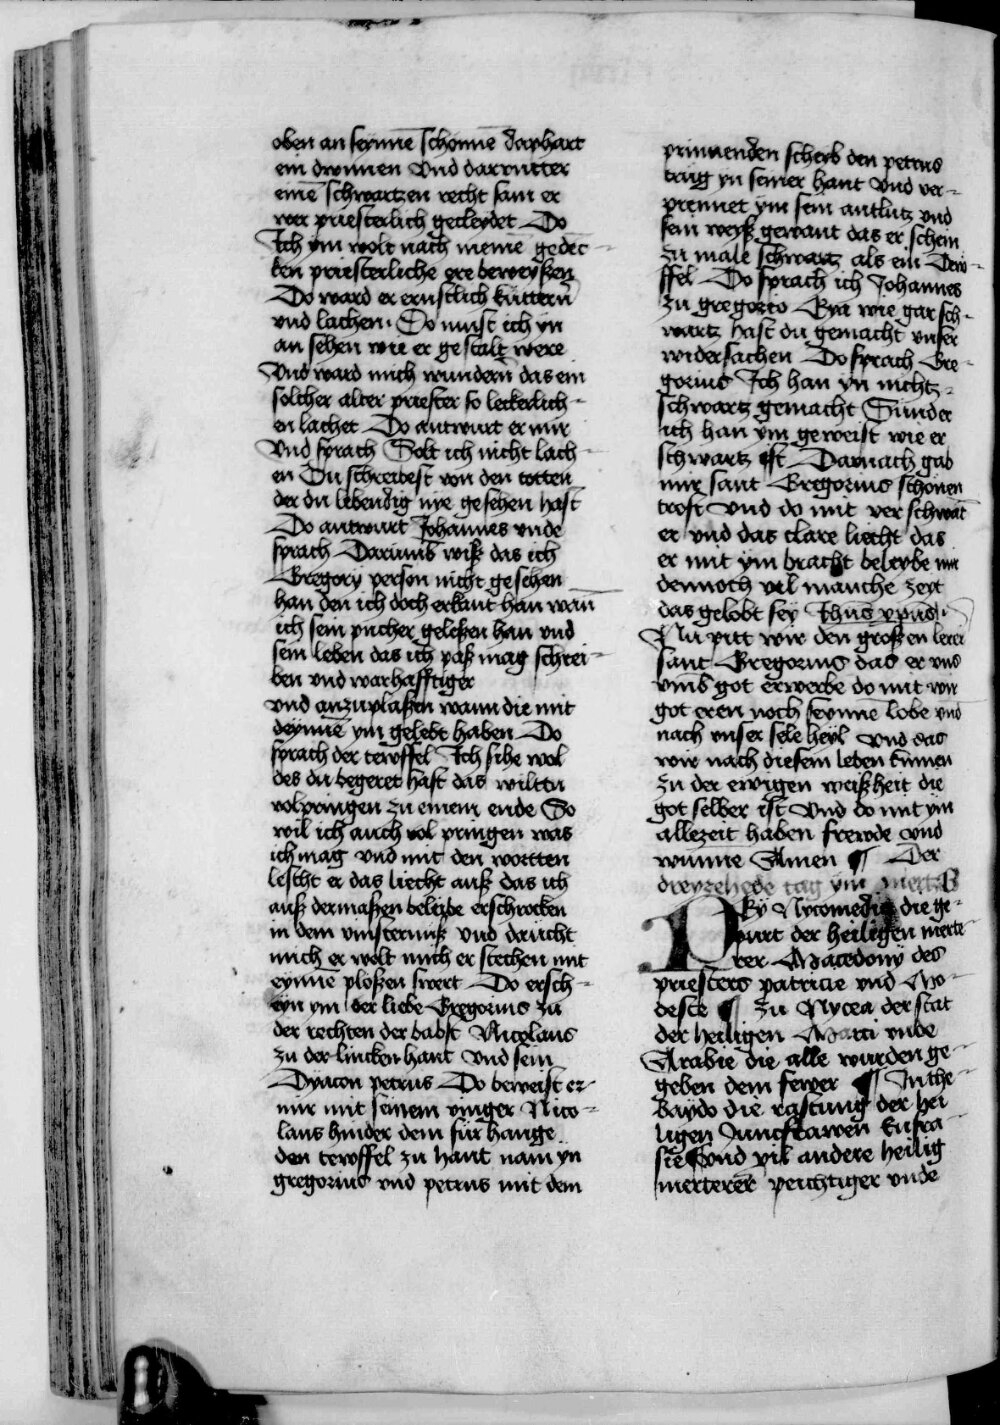 oben an seynnē schönnē daphart
ein drynnen vnd darvntter
einē schwartzen recht sam er
wer priesterlich gecleydet Do
Ich ym wolt nach meine gedēc-
ken priesterliche ere beweyßen
Do ward er ernstlich kuttern
vnd lachen. Do must ich yn
an sehen wie er gestalt were
Vnd ward mich wundern das ein
solcher alter priester so leckerlich-
en lachet Do antwurt er mir
Vnd sprach Solt ich nicht lach-
en Du schreibest von den totten
der du lebendig nye gesehen hast
Do antwurt Johannes vnde
sprach Darumb wiß das ich
Gregorÿ person nicht gesehen
han den ich doch erkant han wan̄
ich sein pücher geleßen han vnd
sein leben das ich paß mag schrei-
ben vnd warhafftiger
vnd anzuplaßen wann die mit
deynnē ym gelebt haben Do
sprach der tewffel Ich sihe wol
des du begeret hast das wiltu
volpringen zu einem ende So
wil ich auch vol pringen was
ich mag vnd mit den wortten
lescht er das liecht auß das ich
auß dermaßen beleibe erschrocken
in dem vinsternuß vnd daücht
mich er wolt mich er stechen mit
eynnē ploßen swert Do ersch-
eyn ym der liebe Gregorius zu
der rechten der babst Nicolaus
zu der lincken hant vnd sein
Dyacon petrus Do beweist er
mir mit seinem vinger Nico-
laus hinder dem fürhange
den tewffel zu hant nam yn
gregorius vnd petrus mit dem
prinnenden scherb den petrus
trug yn seiner hant vnd ver-
prennet ym sein antlutz vnd
sein weyß gewant das er schein
zu male schwartz als ein Tew-
ffel Do sprach ich Johannes
zu gregorio Eya wie gar sch-
wartz hast du gemacht vnser
widersachen Do sprach Gre-
gorius Ich han yn nichtz-
schwartz gemacht Sunder
ich han ym geweist wie er
schwartz ist Darnach gab
mir sant Gregorius schonen
trost vnd do mit ver schwāt
er vnd das clare liecht das
er mit ym bracht beleybe mir
dennoch vil manche zeyt
das gelobt sey Ihus xpus.
Nu pitt wir den großen lerer
sant Gregorius das er vns
vmb got erwerbe do mit wir
got eren noch seynnē lobe vnd
nach vnser sele heyl vnd das
wir nach diesem leben kumen
zu der ewigen weißheit die
got selber ist vnd do mit ym
allezeit haben frewde vnd
wunne Amen ¶ Der
dreyzehede tag ym mertz
By Nycomedia die ge-
purt der heiligen merte
rer Macedonÿ des
priesters patricie vnd Mo-
deste ¶ Zu Nycea der stat
der heiligen Marci vnde
Arabie die alle wurden ge-
geben dem fewer ¶ In the-
baydo die rastung der hei
ligen Junckfrawen Eufra
sie vnd vil andere heilig
merterer peichtiger vnde